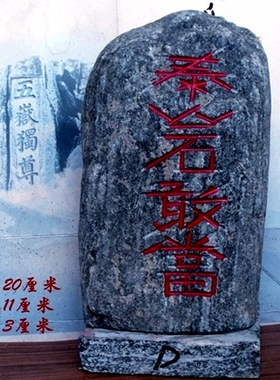 泰山石敢當
五嶽獨尊
20厘米
11厘米
3厘米
P